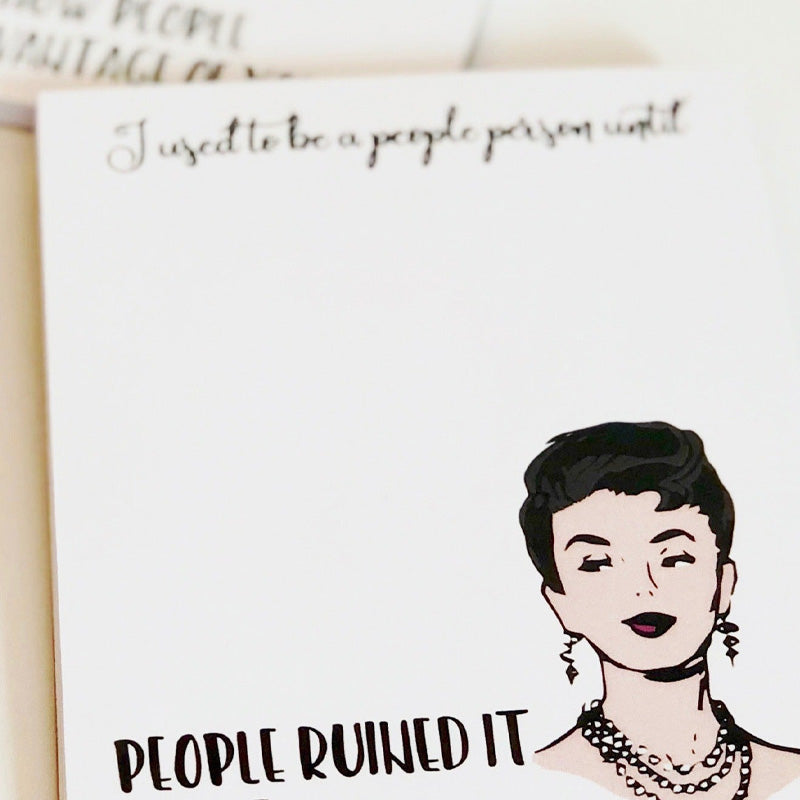 PEOPLE
I used to be a people person until
PEOPLE RUINED IT